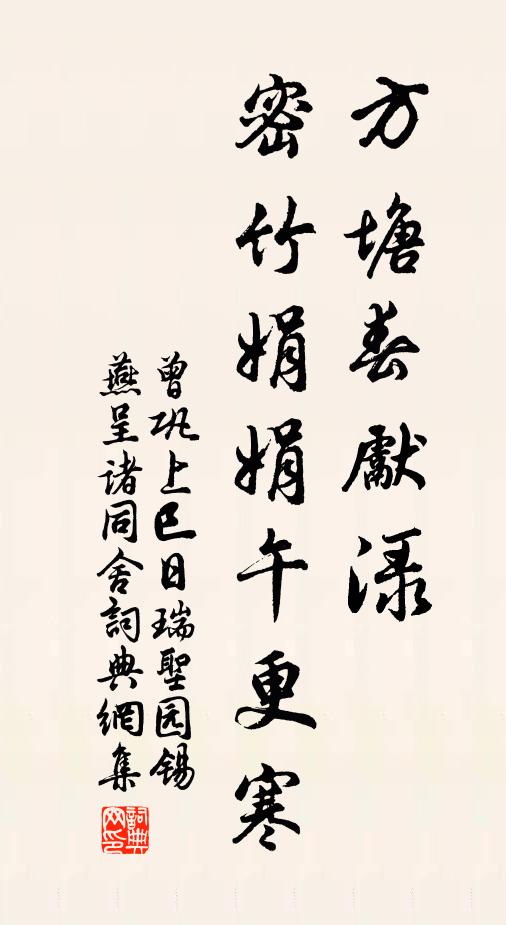 方塘春獻渌
密竹娟娟午更寒
曾巩上巳日瑞聖园锡
燕呈诸同舍詞典網集
詞典